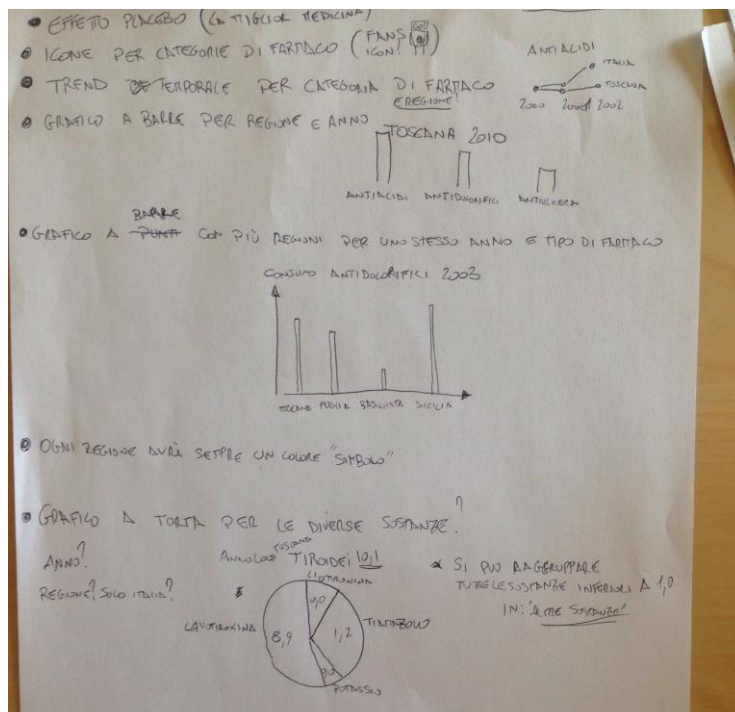 EFFETTO PLACEBO (LA MIGLIOR MEDICINA)
ICONE PER CATEGORIE DI FARMACO (FANS ICON!)
TREND TEMPORALE PER CATEGORIA DI FARMACO
E REGIONE!
ANTIACIDI
ITALIA
TOSCANA
2000 2001 2002
GRAFICO A BARRE PER REGIONE E ANNO
TOSCANA 2010
ANTIACIDI ANTIDOLORIFICI ANTIULCERA
BARRE
GRAFICO A PUNTI CON PIÙ REGIONI PER UNO STESSO ANNO E TIPO DI FARMACO
CONSUMO ANTIDOLORIFICI 2003
TOSCANA PUGLIA BASILICATA SICILIA
OGNI REGIONE AVRÀ SEMPRE UN COLORE "SIMBOLO"
GRAFICO A TORTA PER LE DIVERSE SOSTANZE?
ANNO?
REGIONE? SOLO ITALIA?
TOSCANA
ANNO TIROIDEI 10,1
LIOTIRONINA
0,0
TIAMAZOLO
1,2
LEVOTIROXINA
8,9
0,0
POTASSIO
* SI PUÒ RAGGRUPPARE
TUTTE LE SOSTANZE INFERIORI A 1,0
IN: "ALTRE SOSTANZE"